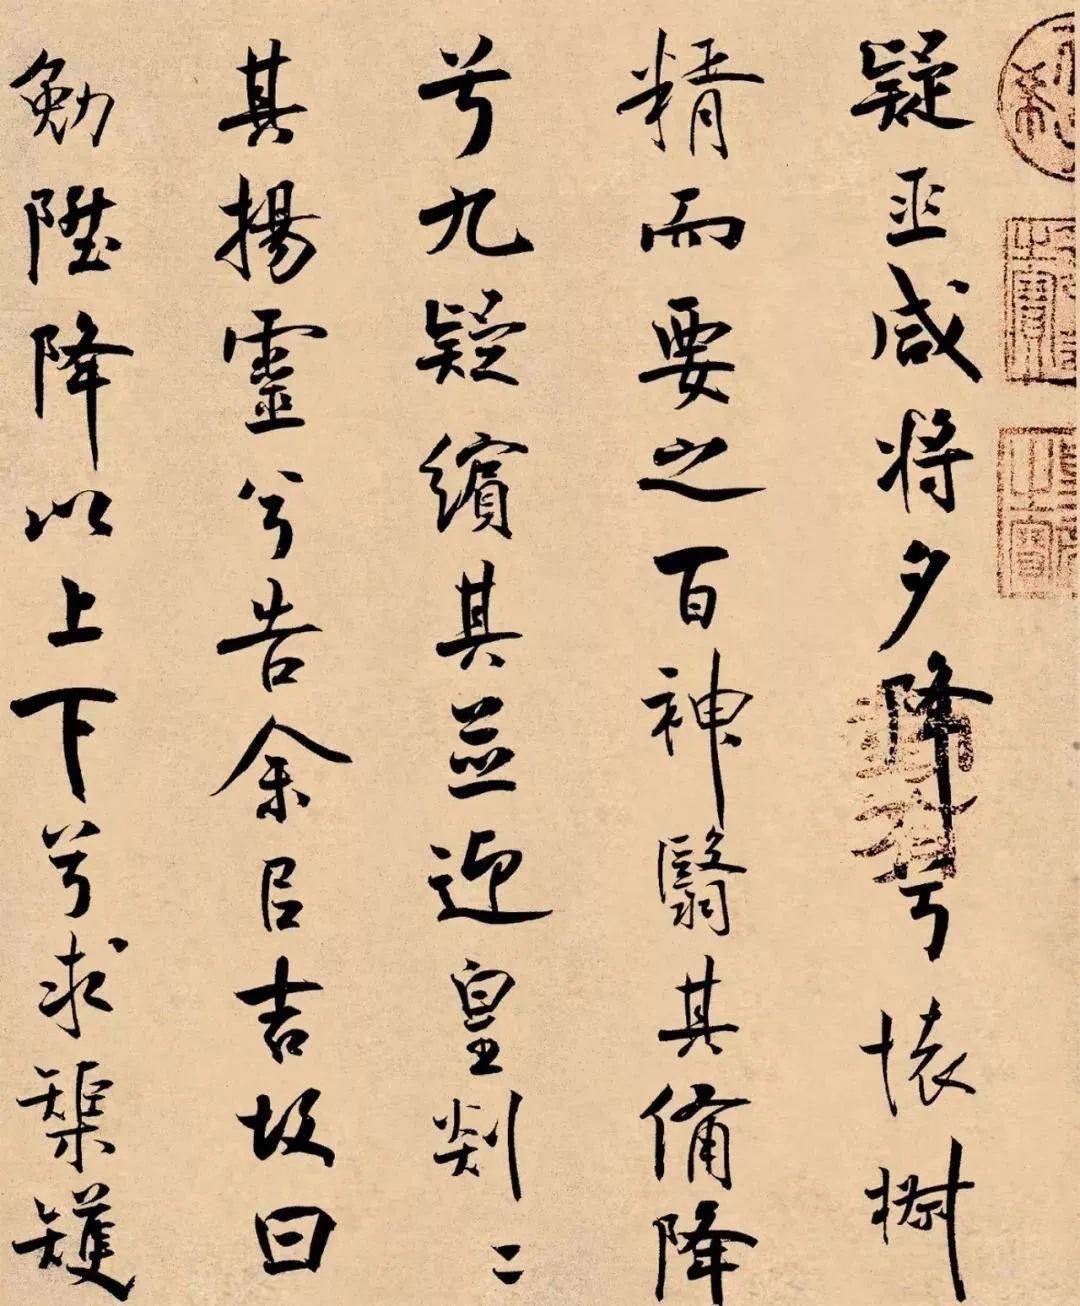 疑巫咸将夕降兮懐椒
精而要之百神翳其備降
兮九疑繽其並迎皇剡二
其揚靈兮告余㠯吉故曰
勉陞降以上下兮求榘矱